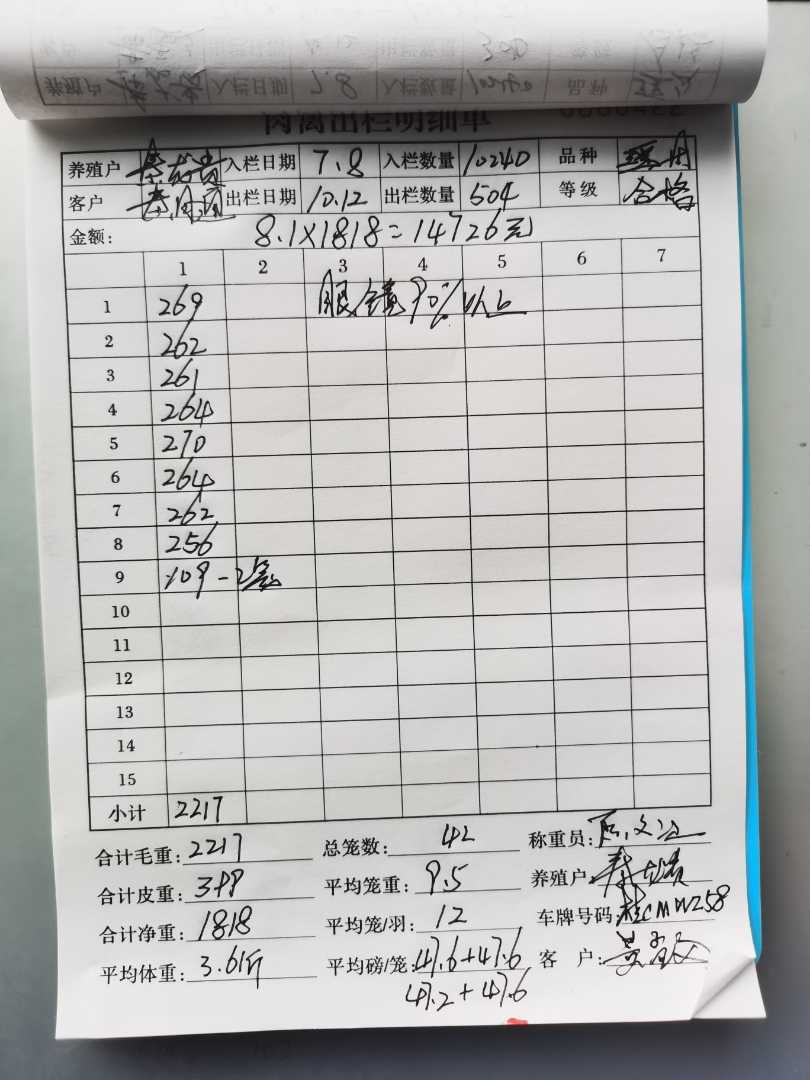 养殖户 入栏日期 7.8 入栏数量 10240 品种
肉禽出栏明细单
养殖户 入栏日期 7.8 入栏数量 10240 品种
客户 出栏日期 10.12 出栏数量 504 等级 合格
金额: 8.1×1818=14726元
1 2 3 4 5 6 7
1 269 眼镜90%以上
2 262
3 261
4 264
5 270
6 264
7 262
8 256
9 109-2笼
10
11
12
13
14
15
小计 2217
合计毛重: 2217 总笼数: 42 称重员:
合计皮重: 399 平均笼重: 9.5 养殖户:
合计净重: 1818 平均笼/羽: 12 车牌号码: 桂CMW258
平均体重: 3.6斤 平均磅/笼: 47.6+47.6 客 户:
47.2+47.6